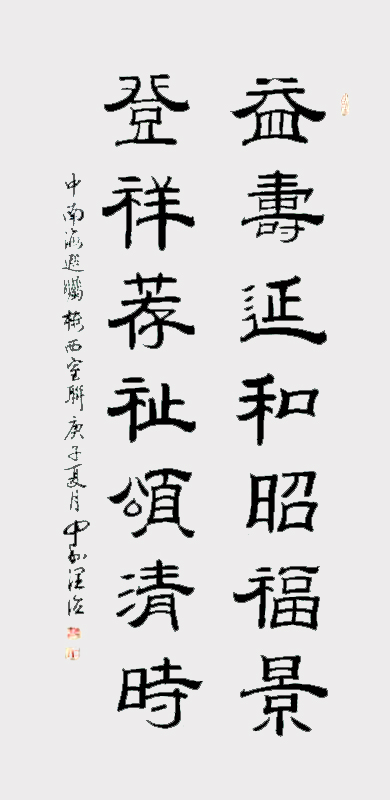 益壽延和昭福景
登祥荐祉頌清時
中南海遐矚樓西室聯庚子夏月